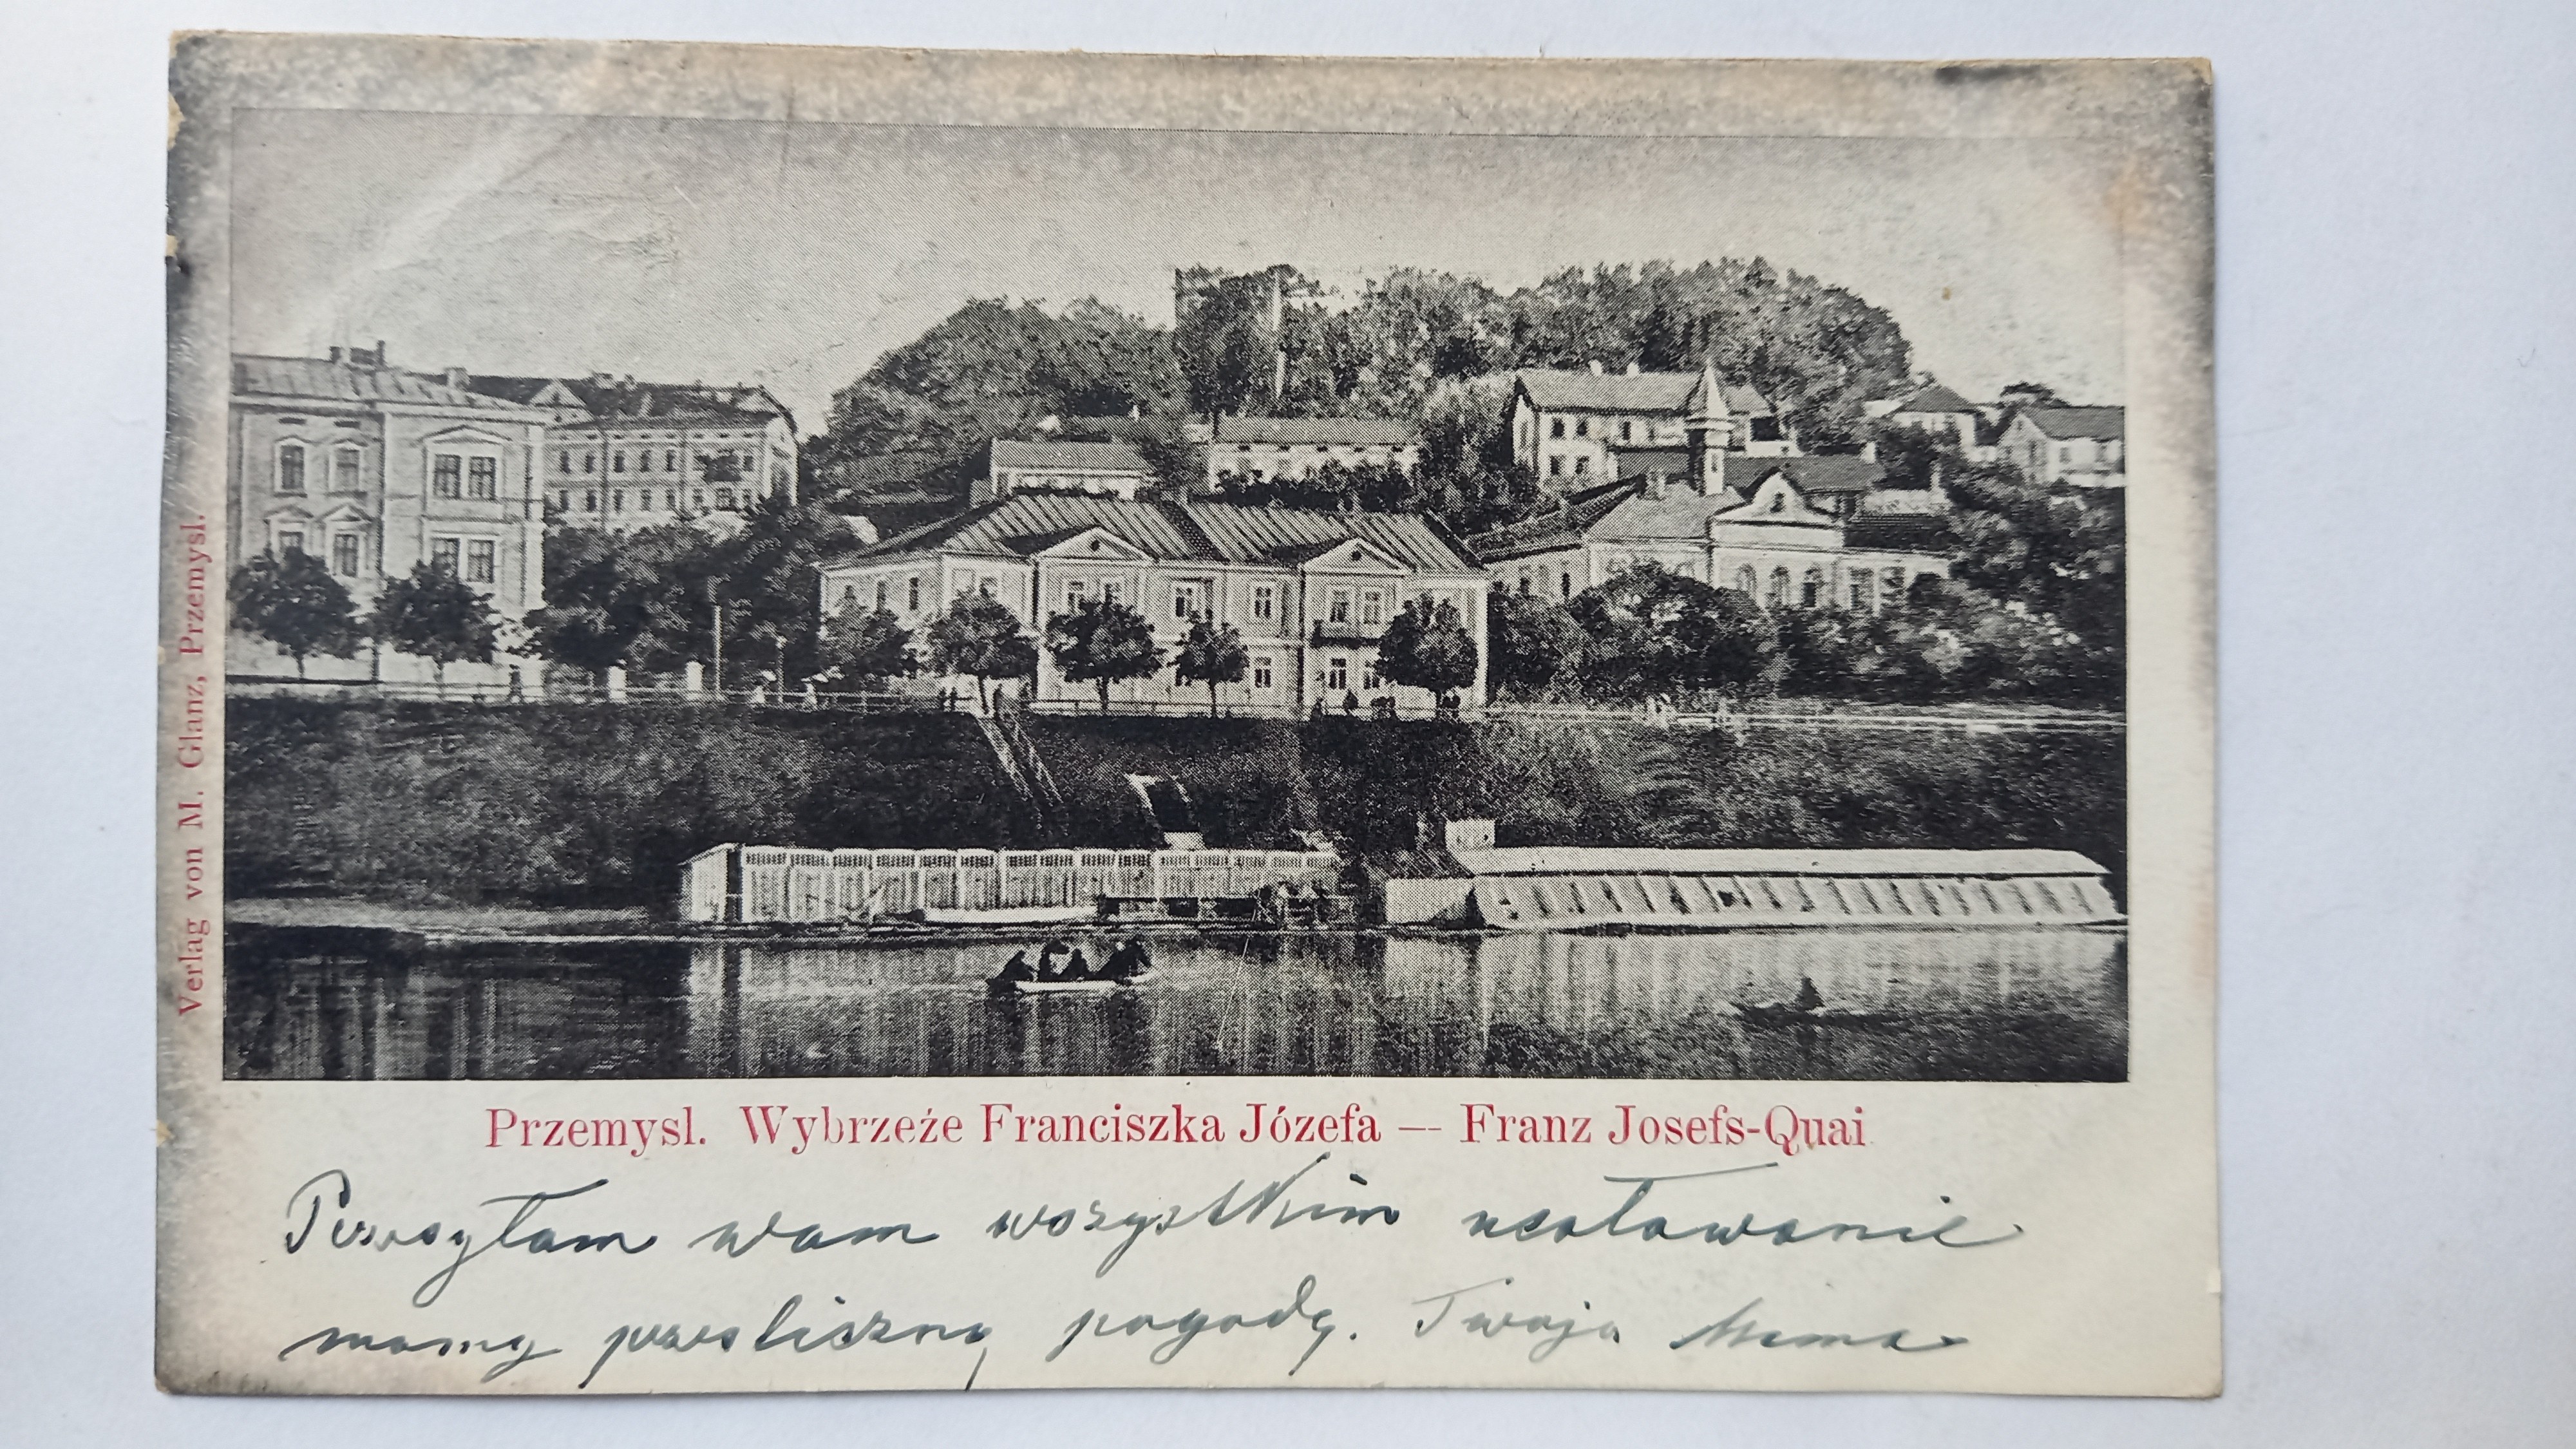 Verlag von M. Glanz, Przemysl.
Przemysl. Wybrzeże Franciszka Józefa — Franz Josefs-Quai
Przesyłam wam wszystkim ucałowanie
mamy prześliczną pogodę. Twoja